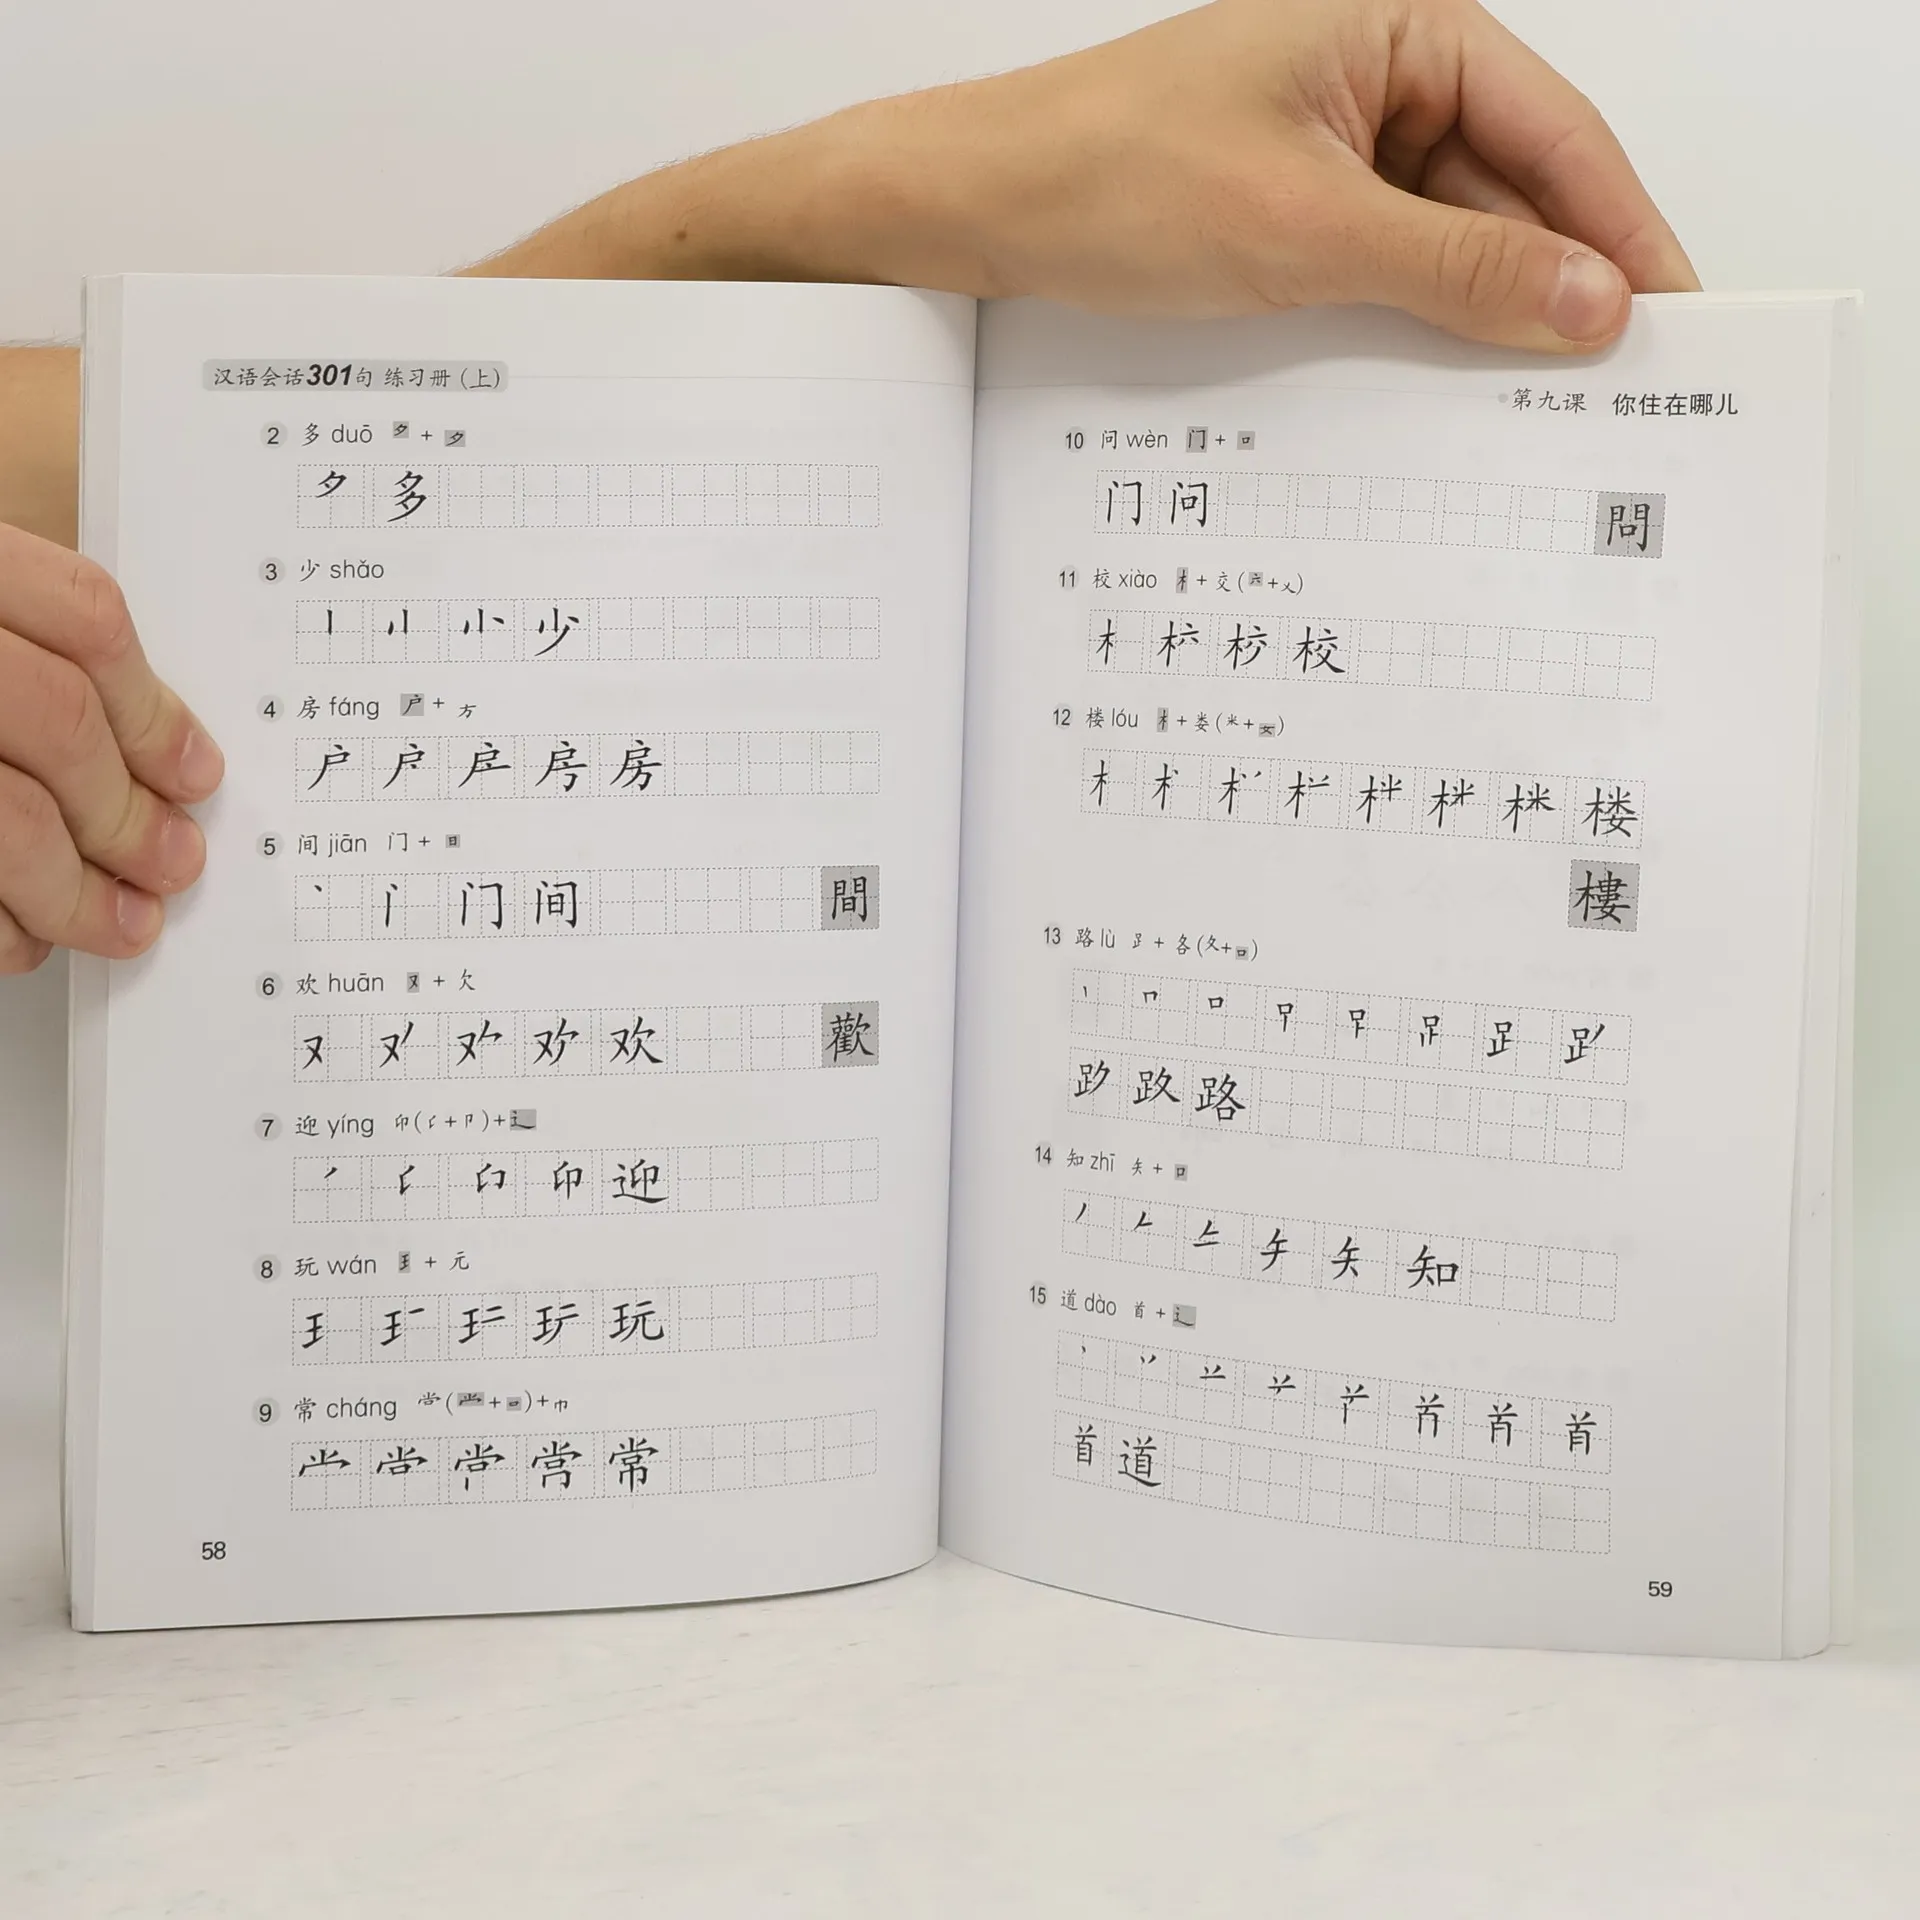 汉语会话301句 练习册（上）
2 多 duō 夕 + 夕
夕 多
3 少 shǎo
丨 小 少
4 房 fáng 户 + 方
户 房
5 间 jiān 门 + 日
丶 门 间 間
6 欢 huān 又 + 欠
又 欢 歡
7 迎 yíng 卬(𠂎+卩)+辶
丿 𠂎 卬 迎
8 玩 wán 王 + 元
王 玩
9 常 cháng 尚(⺌+口)+巾
常
58
第九课 你住在哪儿
10 问 wèn 门 + 口
门 问 問
11 校 xiào 木 + 交(六+乂)
木 校
12 楼 lóu 木 + 娄(米+女)
木 楼
樓
13 路 lù 𧾷 + 各(夂+口)
丨 口 𧾷
路
14 知 zhī 矢 + 口
丿 𠂉 矢 知
15 道 dào 首 + 辶
丶 首
首 道
59